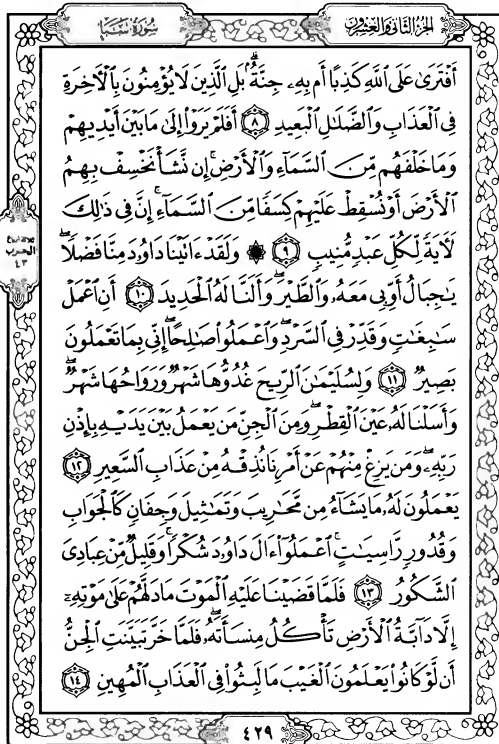 سُورَةُ سَبَإٍ
الجُزْءُ الثَّانِي وَالعِشْرُونَ
أَفْتَرَىٰ عَلَى ٱللَّهِ كَذِبًا أَم بِهِۦ جِنَّةٌۢ ۗ بَلِ ٱلَّذِينَ لَا يُؤْمِنُونَ بِٱلْـَٔاخِرَةِ
فِى ٱلْعَذَابِ وَٱلضَّلَـٰلِ ٱلْبَعِيدِ ٨ أَفَلَمْ يَرَوْا۟ إِلَىٰ مَا بَيْنَ أَيْدِيهِمْ
وَمَا خَلْفَهُم مِّنَ ٱلسَّمَآءِ وَٱلْأَرْضِ ۚ إِن نَّشَأْ نَخْسِفْ بِهِمُ
ٱلْأَرْضَ أَوْ نُسْقِطْ عَلَيْهِمْ كِسَفًا مِّنَ ٱلسَّمَآءِ ۚ إِنَّ فِى ذَٰلِكَ
لَـَٔايَةً لِّكُلِّ عَبْدٍ مُّنِيبٍ ٩ ۞ وَلَقَدْ ءَاتَيْنَا دَاوُۥدَ مِنَّا فَضْلًا ۖ
يَـٰجِبَالُ أَوِّبِى مَعَهُۥ وَٱلطَّيْرَ ۖ وَأَلَنَّا لَهُ ٱلْحَدِيدَ ١٠ أَنِ ٱعْمَلْ
سَـٰبِغَـٰتٍ وَقَدِّرْ فِى ٱلسَّرْدِ ۖ وَٱعْمَلُوا۟ صَـٰلِحًا ۖ إِنِّى بِمَا تَعْمَلُونَ
بَصِيرٌ ١١ وَلِسُلَيْمَـٰنَ ٱلرِّيحَ غُدُوُّهَا شَهْرٌ وَرَوَاحُهَا شَهْرٌ ۖ
وَأَسَلْنَا لَهُۥ عَيْنَ ٱلْقِطْرِ ۖ وَمِنَ ٱلْجِنِّ مَن يَعْمَلُ بَيْنَ يَدَيْهِ بِإِذْنِ
رَبِّهِۦ ۖ وَمَن يَزِغْ مِنْهُمْ عَنْ أَمْرِنَا نُذِقْهُ مِنْ عَذَابِ ٱلسَّعِيرِ ١٢
يَعْمَلُونَ لَهُۥ مَا يَشَآءُ مِن مَّحَـٰرِيبَ وَتَمَـٰثِيلَ وَجِفَانٍ كَٱلْجَوَابِ
وَقُدُورٍ رَّاسِيَـٰتٍ ۚ ٱعْمَلُوٓا۟ ءَالَ دَاوُۥدَ شُكْرًا ۚ وَقَلِيلٌ مِّنْ عِبَادِىَ
ٱلشَّكُورُ ١٣ فَلَمَّا قَضَيْنَا عَلَيْهِ ٱلْمَوْتَ مَا دَلَّهُمْ عَلَىٰ مَوْتِهِۦٓ
إِلَّا دَآبَّةُ ٱلْأَرْضِ تَأْكُلُ مِنسَأَتَهُۥ ۖ فَلَمَّا خَرَّ تَبَيَّنَتِ ٱلْجِنُّ
أَن لَّوْ كَانُوا۟ يَعْلَمُونَ ٱلْغَيْبَ مَا لَبِثُوا۟ فِى ٱلْعَذَابِ ٱلْمُهِينِ ١٤
الحزب
٤٣
٤٢٩